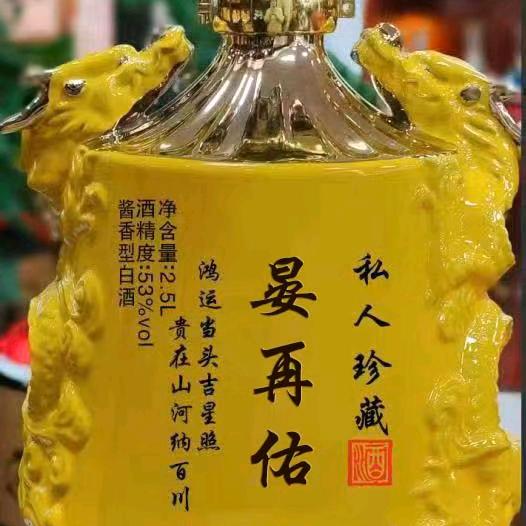 私人珍藏
酒
晏再佑
鸿运当头吉星照
贵在山河纳百川
净含量:2.5L
酒精度:53%vol
酱香型白酒